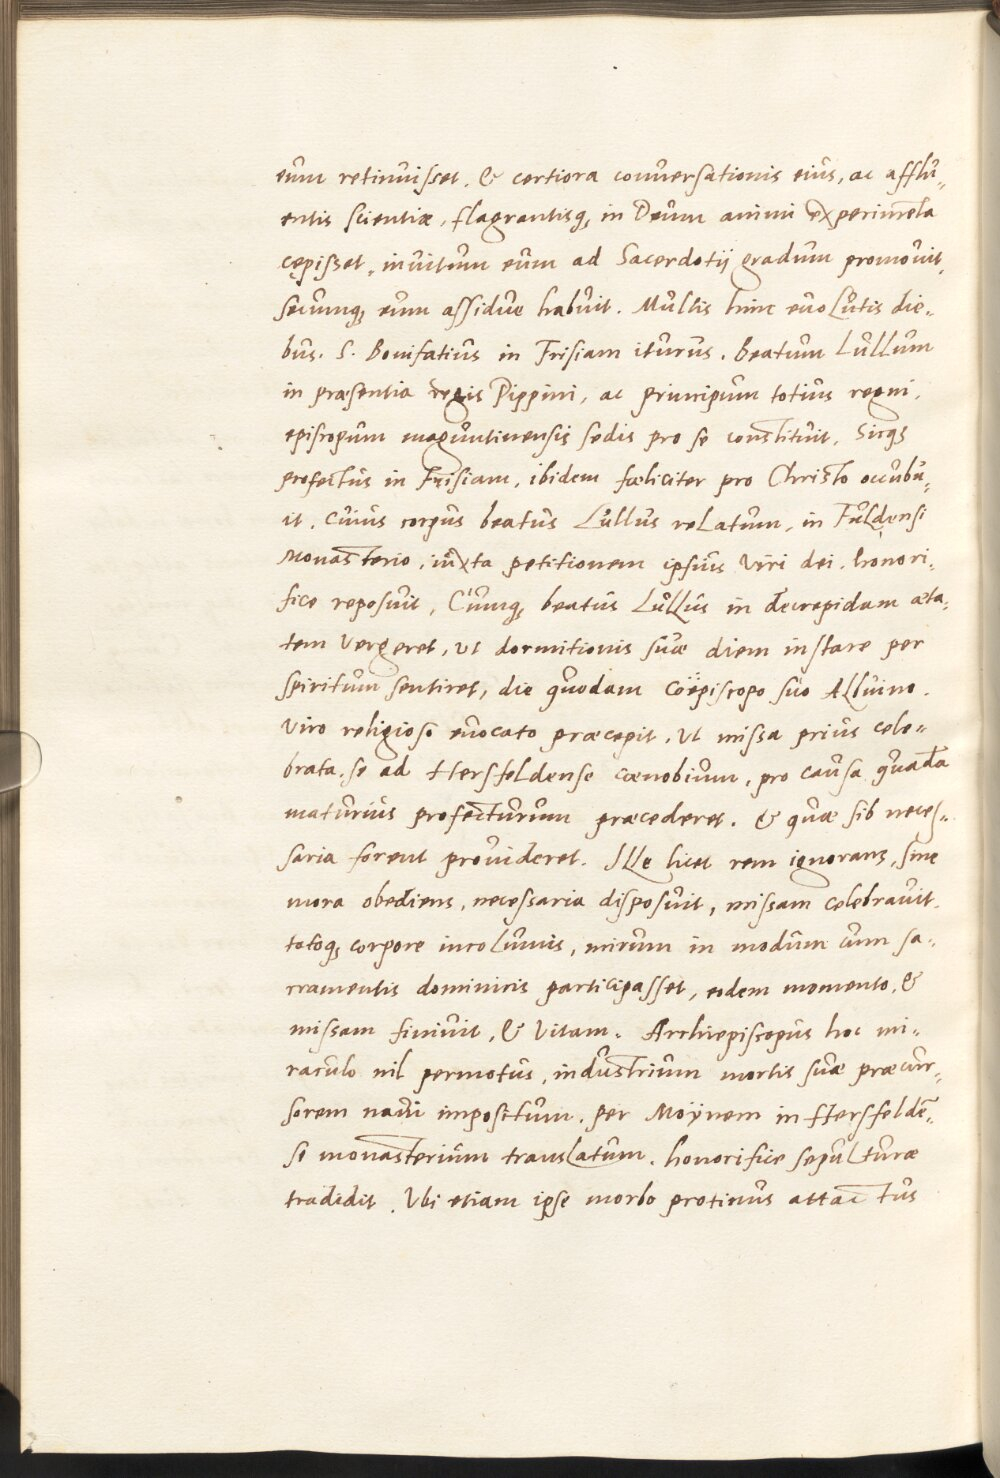 eum retinuisset. & certiora conuersationis eius, ac afflu„
entis scientiæ, flagrantisq, in Deum animi experimēta
cępisset, inuitum eum ad Sacerdotij gradum promouit,
secumq, eum assidue habuit. Multis hinc euolutis die„
bus. S. Bonifatius in Frisiam iturus. beatum Lullum
in præsentia regis Pippini, ac principum totius regni,
episcopum maguntinensis sedis pro se constituit, Sicq,
profectus in Frisiam, ibidem fœliciter pro Christo occubu„
it. Cuius corpus beatus Lullus relatum, in Fuldensi
Monasterio, iuxta petitionem ipsius Viri dei. honori„
fice reposuit, Cumq, beatus Lullus in decrepidam æta„
tem Vergeret, ut dormitionis suæ diem instare per
spiritum sentiret, die quodam Coëpiscopo suo Albuino.
Viro religioso euocato præcepit. Ut missa prius cele„
brata. se ad Hersfeldense cœnobium, pro causa quadā
maturius profecturum præcederet. & quæ sib neces„
saria forent prouideret. Ille licet rem ignorans, sine
mora obediens, necessaria disposuit, missam celebrauit.
totoq, corpore incolumis, mirum in modum cum sa„
cramentis dominicis participasset, eodem momento, &
missam finiuit, & Vitam. Archiepiscopus hoc mi„
raculo nil permotus, industrium mortis suæ præcur„
sorem naui impositum. per Moÿnem in Hersfeldē„
se monasterium translatum. honorifice sepulturæ
tradidit. Ubi etiam ipse morbo protinus attactus